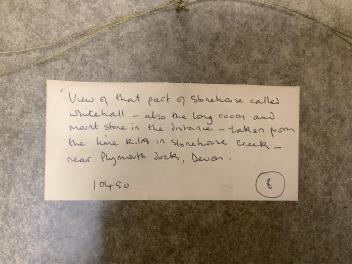 'View of that part of Stonehouse called
Whitehall - also the long room and
mount stone in the distance - taken from
the lime kiln in Stonehouse Creek -
near Plymouth Dock, Devon.
10450
8